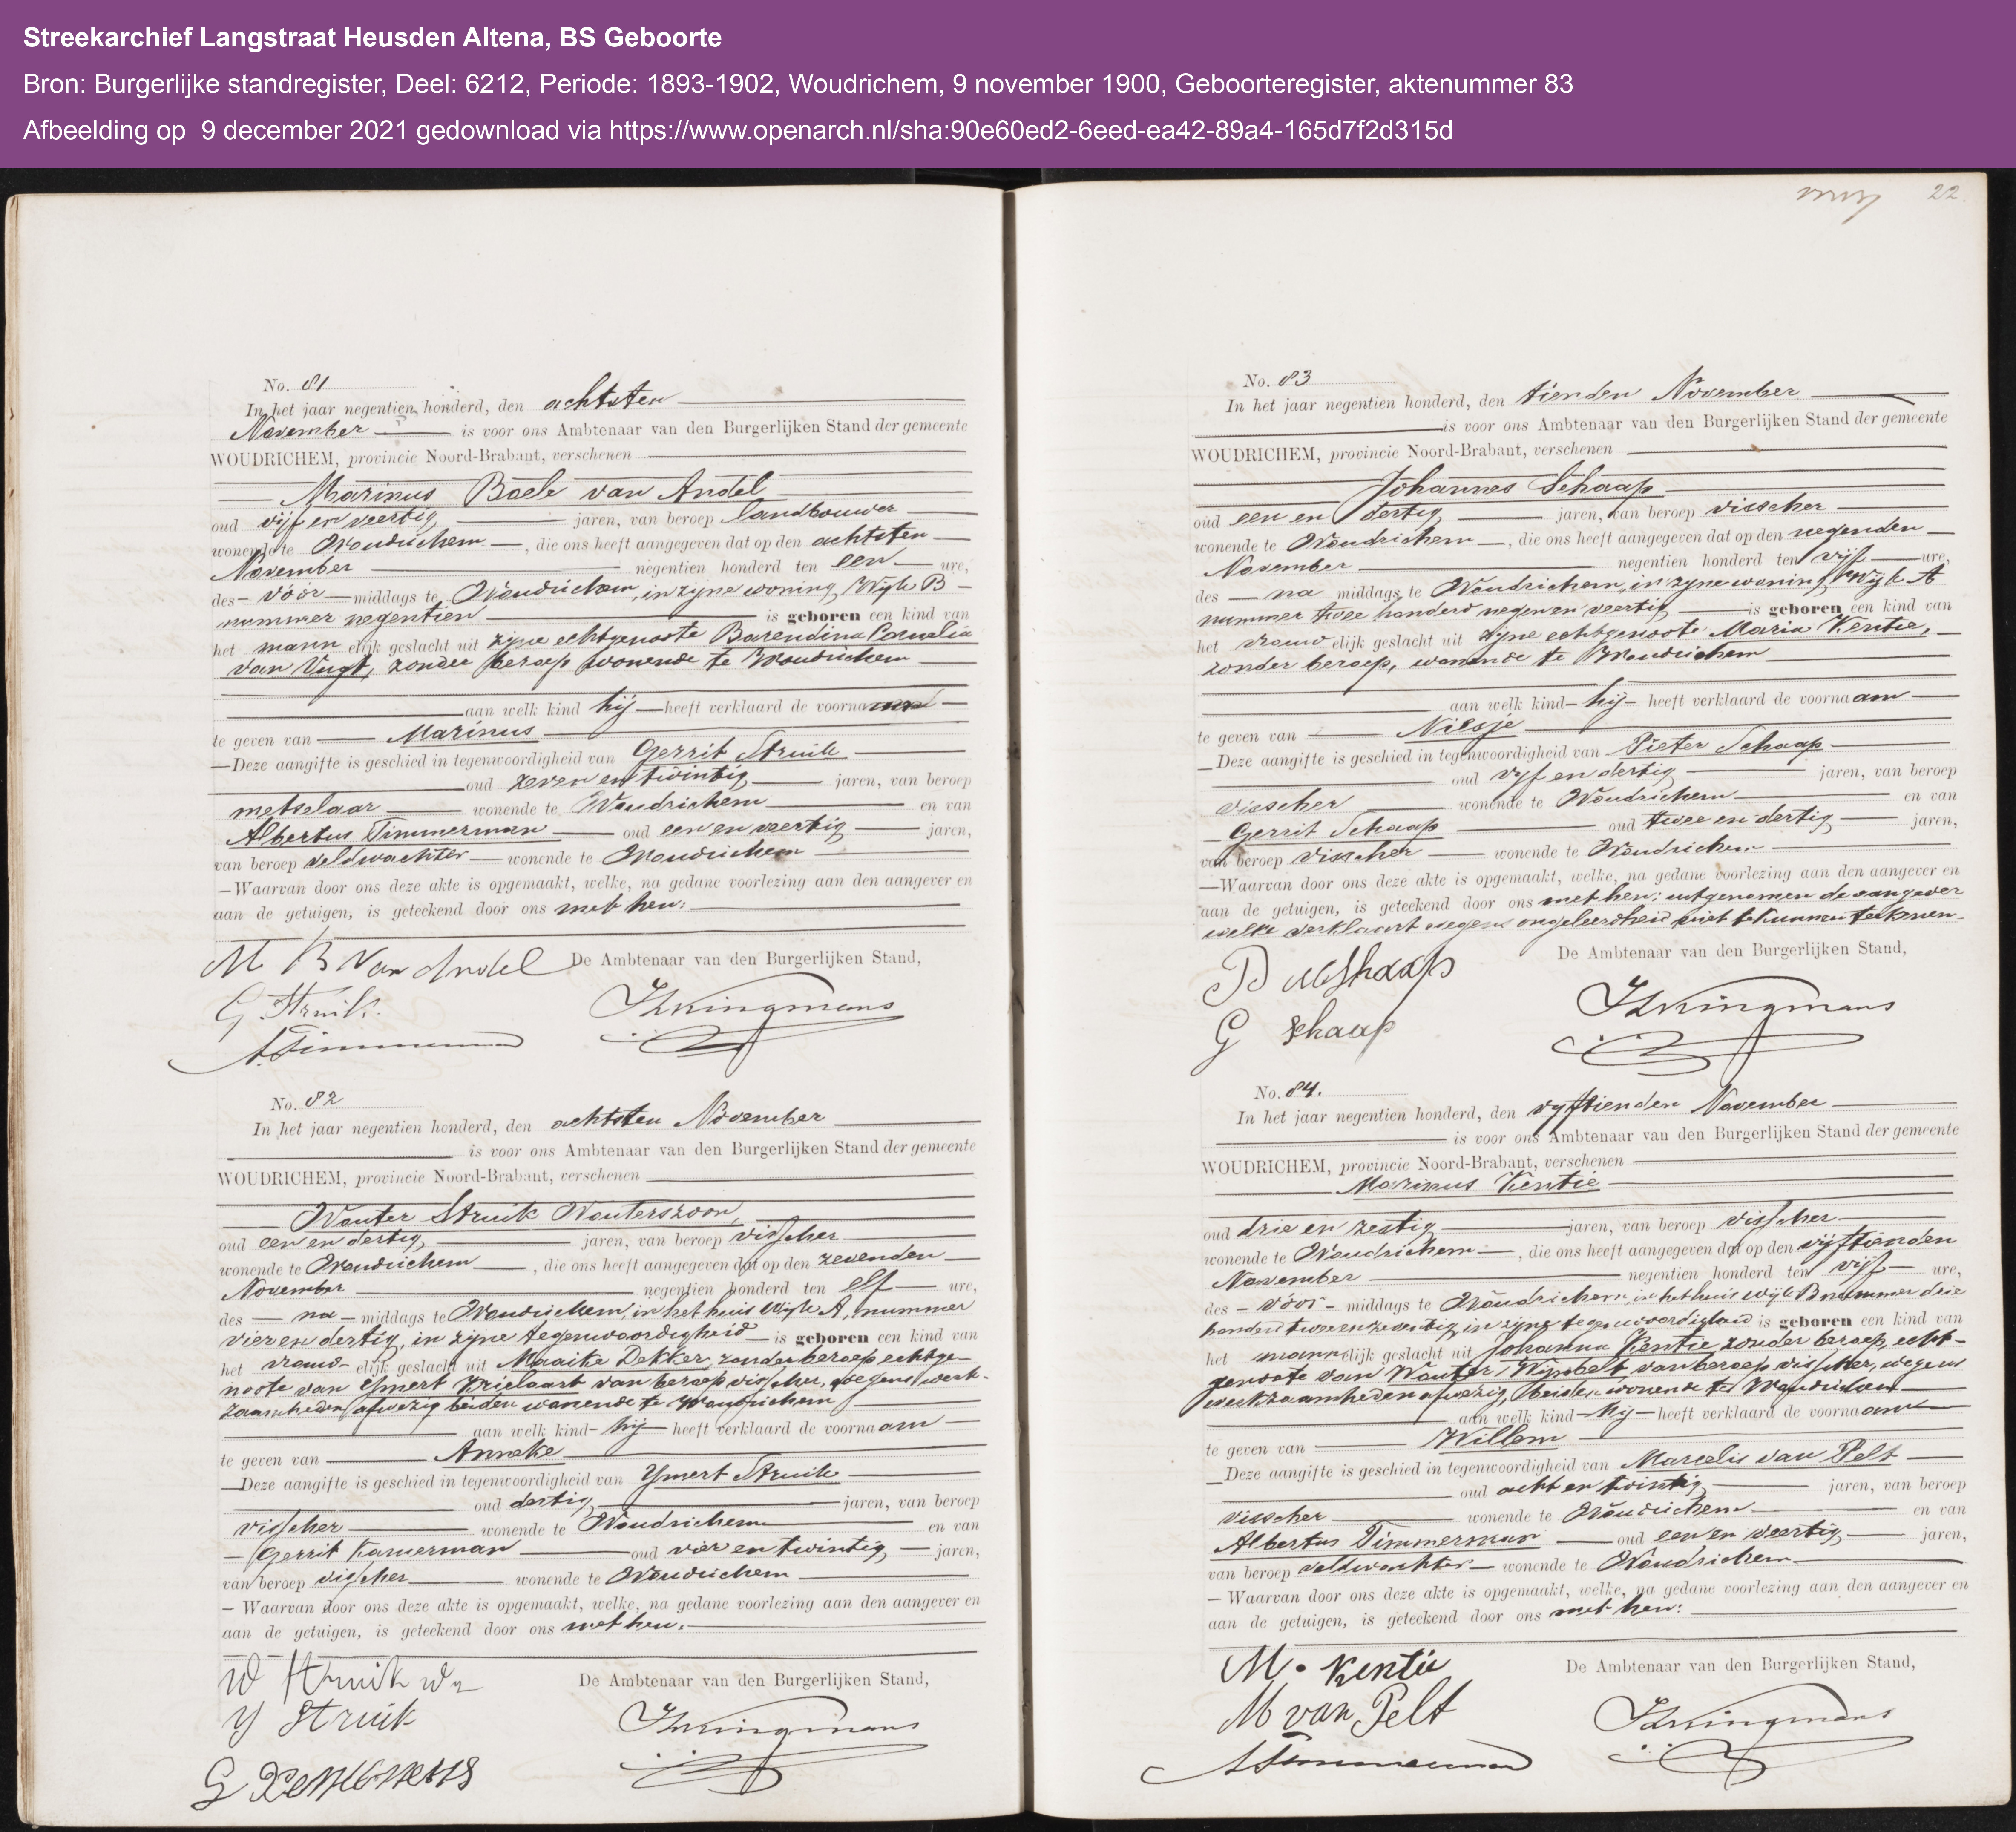 Streekarchief Langstraat Heusden Altena, BS Geboorte
Bron: Burgerlijke standregister, Deel: 6212, Periode: 1893-1902, Woudrichem, 9 november 1900, Geboorteregister, aktenummer 83
Afbeelding op 9 december 2021 gedownload via https://www.openarch.nl/sha:90e60ed2-6eed-ea42-89a4-165d7f2d315d
No. 81
In het jaar negentien honderd, den achtsten
November is voor ons Ambtenaar van den Burgerlijken Stand der gemeente
WOUDRICHEM, provincie Noord-Brabant, verschenen
Marinus Baele van Andel
oud vijf en veertig jaren, van beroep landbouwer
wonende te Woudrichem, die ons heeft aangegeven dat op den achtsten
November negentien honderd ten een ure,
des vóór middags te Woudrichem, in zijne woning, Wijk B
nummer negentien is geboren een kind van
het mannelijk geslacht uit zijne echtgenoote Barendina Cornelia
van Vugt, zonder beroep wonende te Woudrichem
aan welk kind hij heeft verklaard de voornaam
te geven van Marinus
Deze aangifte is geschied in tegenwoordigheid van Gerrit Struik
oud zeven en twintig jaren, van beroep
metselaar wonende te Woudrichem en van
Albertus Timmerman oud een en veertig jaren,
van beroep veldwachter wonende te Woudrichem
Waarvan door ons deze akte is opgemaakt, welke, na gedane voorlezing aan den aangever en
aan de getuigen, is geteekend door ons met hen.
De Ambtenaar van den Burgerlijken Stand,
M B Van Andel
G Struik
A Timmerman
No. 82
In het jaar negentien honderd, den achtsten November
is voor ons Ambtenaar van den Burgerlijken Stand der gemeente
WOUDRICHEM, provincie Noord-Brabant, verschenen
Wouter Struik Wouterszoon,
oud een en dertig, jaren, van beroep visscher
wonende te Woudrichem, die ons heeft aangegeven dat op den zevenden
November negentien honderd ten elf ure,
des na middags te Woudrichem, in het huis Wijk A, nummer
vier en dertig, in zijne tegenwoordigheid is geboren een kind van
het vrouwelijk geslacht uit Maaike Dekker, zonder beroep echtge-
noote van Ymert Krielaart van beroep visscher, wegens werk-
zaamheden afwezig beiden wonende te Woudrichem
aan welk kind hij heeft verklaard de voornaam
te geven van Anneke
Deze aangifte is geschied in tegenwoordigheid van Ymert Struik
oud dertig jaren, van beroep
visscher wonende te Woudrichem en van
Gerrit Kamerman oud vier en twintig jaren,
van beroep visscher wonende te Woudrichem
Waarvan door ons deze akte is opgemaakt, welke, na gedane voorlezing aan den aangever en
aan de getuigen, is geteekend door ons met hen.
De Ambtenaar van den Burgerlijken Stand,
W Struik Wz
Y Struik
G
22.
No. 83
In het jaar negentien honderd, den tienden November
is voor ons Ambtenaar van den Burgerlijken Stand der gemeente
WOUDRICHEM, provincie Noord-Brabant, verschenen
Johannes Schaap
oud een en dertig jaren, van beroep visscher
wonende te Woudrichem, die ons heeft aangegeven dat op den negenden
November negentien honderd ten vijf ure,
des na middags te Woudrichem, in zijne woning, Wijk A
nummer twee honderd negen en veertig is geboren een kind van
het vrouwelijk geslacht uit zijne echtgenoote Maria Kentie,
zonder beroep, wonende te Woudrichem
aan welk kind hij heeft verklaard de voornaam
te geven van Niesje
Deze aangifte is geschied in tegenwoordigheid van Pieter Schaap
oud vijf en dertig jaren, van beroep
visscher wonende te Woudrichem en van
Gerrit Schaap oud twee en dertig jaren,
van beroep visscher wonende te Woudrichem
Waarvan door ons deze akte is opgemaakt, welke, na gedane voorlezing aan den aangever en
aan de getuigen, is geteekend door ons met hen; uitgenomen de aangever
welke verklaart wegens ongeleerdheid niet te kunnen teekenen.
De Ambtenaar van den Burgerlijken Stand,
G Schaap
No. 84.
In het jaar negentien honderd, den vijftienden November
is voor ons Ambtenaar van den Burgerlijken Stand der gemeente
WOUDRICHEM, provincie Noord-Brabant, verschenen
Marinus Kentie
oud drie en zestig jaren, van beroep visscher
wonende te Woudrichem, die ons heeft aangegeven dat op den vijftienden
November negentien honderd ten vijf ure,
des vóór middags te Woudrichem, in het huis wijk B nummer drie
honderd twee en zeventig, in zijne tegenwoordigheid is geboren een kind van
het mannelijk geslacht uit Johanna Kentie zonder beroep, echt-
genoote van Wouter Wijnbelt, van beroep visscher, wegens
werkzaamheden afwezig, beiden wonende te Woudrichem
aan welk kind hij heeft verklaard de voornaam
te geven van Willem
Deze aangifte is geschied in tegenwoordigheid van Marcelis van Pelt
oud acht en twintig jaren, van beroep
visscher wonende te Woudrichem en van
Albertus Timmerman oud een en veertig, jaren,
van beroep veldwachter wonende te Woudrichem
Waarvan door ons deze akte is opgemaakt, welke, na gedane voorlezing aan den aangever en
aan de getuigen, is geteekend door ons met hen.
De Ambtenaar van den Burgerlijken Stand,
M. Kentie
M van Pelt
A Timmerman